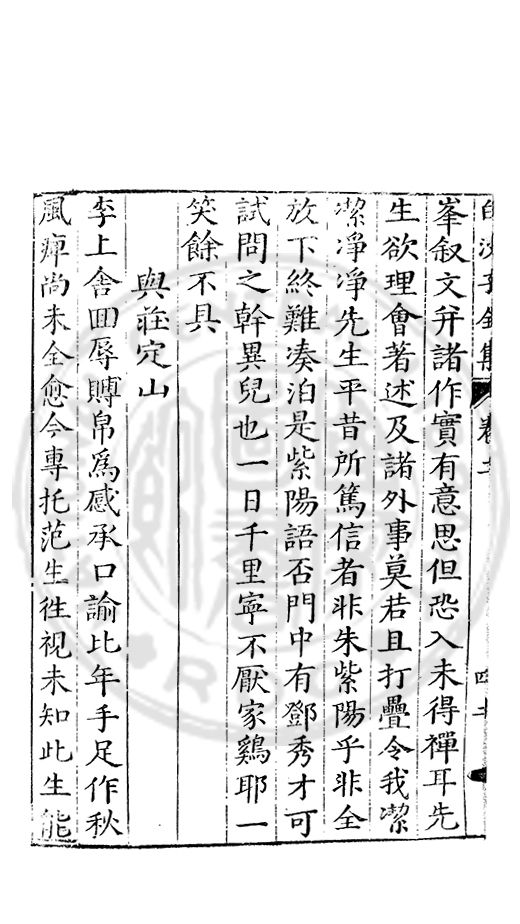 白沙子全集 卷之 四十
峯叙文并諸作實有意思但恐入未得禪耳先
生欲理會著述及諸外事莫若且打疊令我潔
潔净净先生平昔所篤信者非朱紫陽乎非全
放下終難凑泊是紫陽語否門中有鄧秀才可
試問之幹異兒也一日千里寧不厭家鷄耶一
笑餘不具
與莊定山
李上舍回辱賻帛爲感承口諭比年手足作秋
風痺尚未全愈今專托范生徃視未知此生能